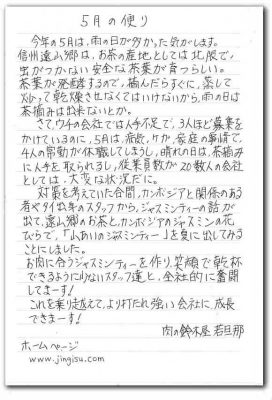 5月の便り
今年の5月は、雨の日が多かった気がします。
信州遠山郷は、お茶の産地としては北限で、
虫がつかない安全な茶葉が育つらしい。
茶葉が発酵するので、摘んだらすぐに、蒸して
炒って乾燥させなくてはいけないから、雨の日は
茶摘みは出来ないとか。
さて、ウチの会社では人手不足で、3人ほど募集を
かけているのに、5月は、病欠、ケガ、家庭の事情で、
4人の常勤が休職してしまうし、晴れの日は、茶摘み
に人手を取られるし、従業員数が20数人の会社
としては、大変な状況だに。
対策を考えていた合間、カンボジアと関係のある
者やタイ出身のスタッフから、ジャスミンティーの話が
出て、遠山郷のお茶とカンボジアのジャスミンの花
びらで、「山あいのジャスミンティー」を夏に出してみる
ことにしました。
お肉に合うジャスミンティーを作り、笑顔で乾杯
できるように少ないスタッフ達と、全社的に奮闘
してまーす!
これを乗り越えて、より打たれ強い会社に成長
できまーす!
肉の鈴木屋 若旦那
ホームページ
www.jingisu.com